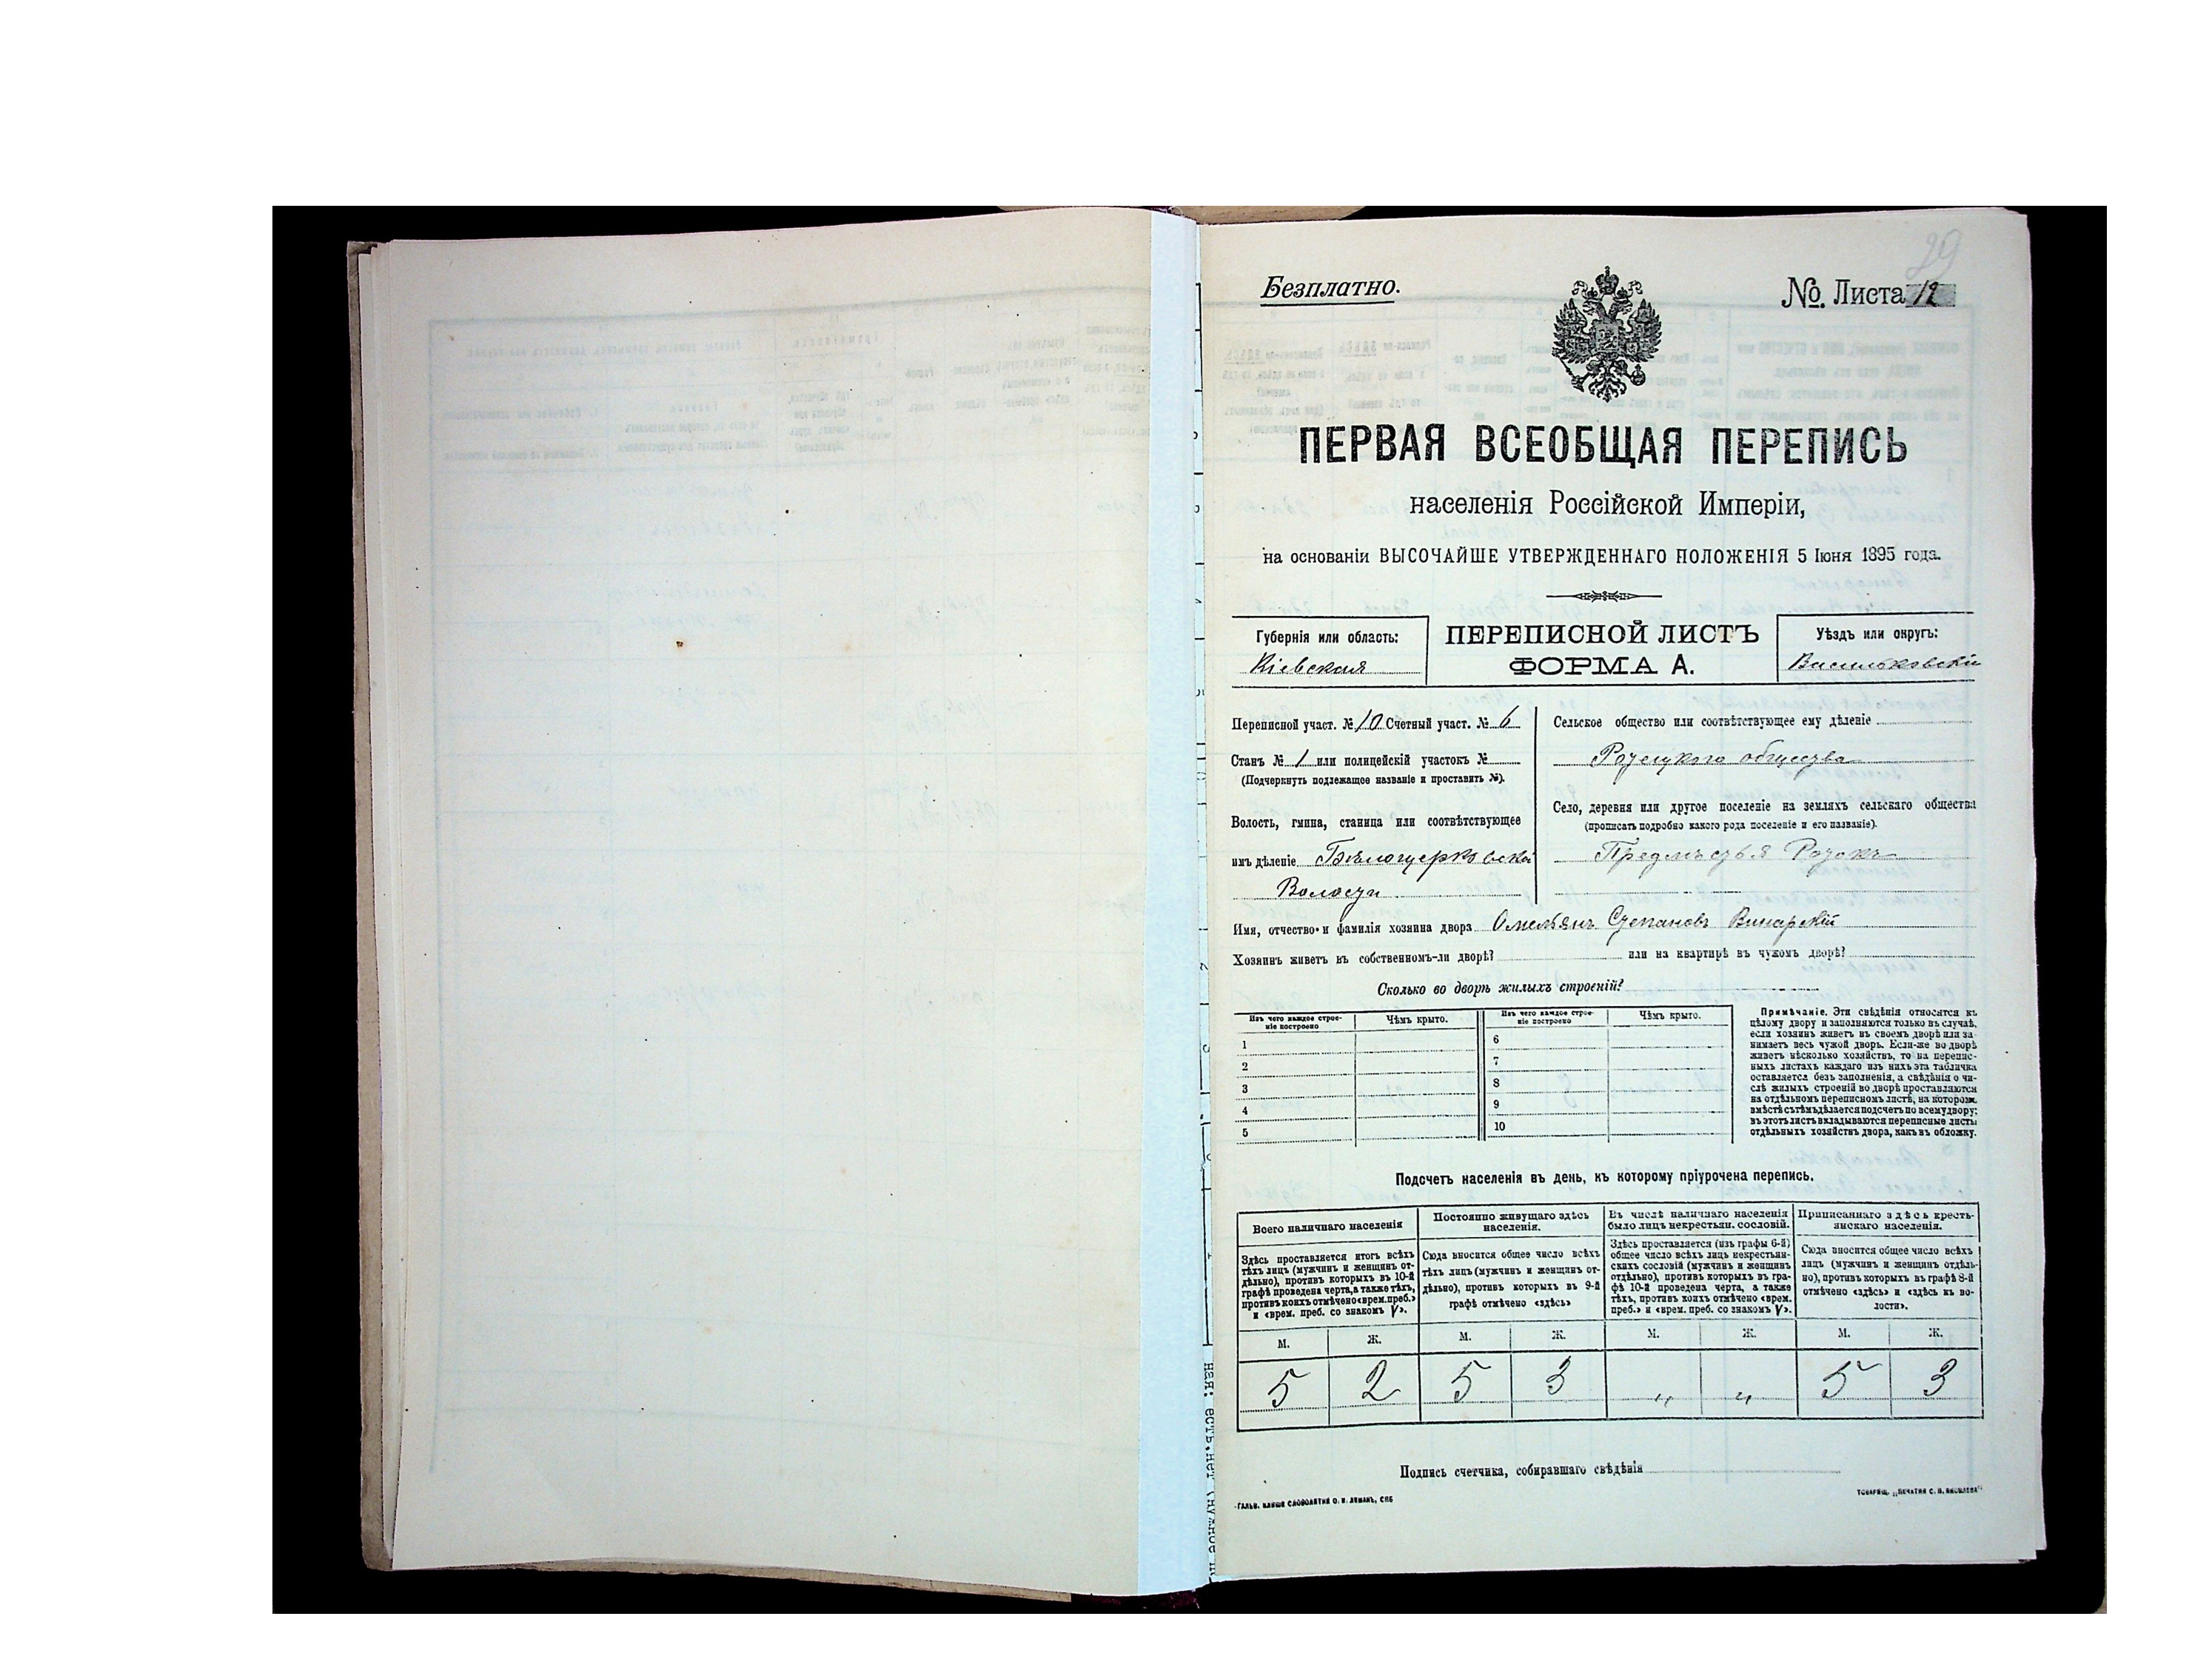 29
Безплатно.
№. Листа 12
ПЕРВАЯ ВСЕОБЩАЯ ПЕРЕПИСЬ
населенія Россійской Имперіи,
на основаніи ВЫСОЧАЙШЕ УТВЕРЖДЕННАГО ПОЛОЖЕНІЯ 5 Іюня 1895 года.
Губернія или область:
Кіевская
ПЕРЕПИСНОЙ ЛИСТЪ
ФОРМА А.
Уѣздъ или округъ:
Васильковскій
Переписной участ. № 10 Счетный участ. № 6
Станъ № 1 или полицейскій участокъ №
(Подчеркнуть подлежащее названіе и проставить №).
Волость, гмина, станица или соотвѣтствующее
имъ дѣленіе Бѣлоцерковской
Волости
Сельское общество или соотвѣтствующее ему дѣленіе
Ротецкого общества
Село, деревня или другое поселеніе на земляхъ сельскаго общества
(прописать подробно какого рода поселеніе и его названіе).
Предмѣстья Ротокъ
Имя, отчество и фамилія хозяина двора Омельянъ Степановъ Винарскій
Хозяинъ живетъ въ собственномъ-ли дворѣ? или на квартирѣ въ чужомъ дворѣ?
Сколько во дворѣ жилыхъ строеній?
Изъ чего каждое строе-
ніе построено
Чѣмъ крыто.
Изъ чего каждое строе-
ніе построено
Чѣмъ крыто.
1
2
3
4
5
6
7
8
9
10
Примѣчаніе. Эти свѣдѣнія относятся къ
цѣлому двору и заполняются только въ случаѣ,
если хозяинъ живетъ въ своемъ дворѣ или за-
нимаетъ весь чужой дворъ. Если-же во дворѣ
живетъ нѣсколько хозяйствъ, то на перепис-
ныхъ листахъ каждаго изъ нихъ эта табличка
оставляется безъ заполненія, а свѣдѣнія о чи-
слѣ жилыхъ строеній во дворѣ проставляются
на отдѣльномъ переписномъ листѣ, на которомъ
вмѣстѣ съ тѣмъ дѣлается подсчетъ по всему двору;
въ этотъ листъ вкладываются переписные листы
отдѣльныхъ хозяйствъ двора, какъ въ обложку.
Подсчетъ населенія въ день, къ которому пріурочена перепись.
Всего наличнаго населенія
Здѣсь проставляется итогъ всѣхъ
тѣхъ лицъ (мужчинъ и женщинъ от-
дѣльно), противъ которыхъ въ 10-й
графѣ проведена черта, а также тѣхъ,
противъ коихъ отмѣчено «врем. преб.»
и «врем. преб. со знакомъ V».
Постоянно живущаго здѣсь
населенія.
Сюда вносится общее число всѣхъ
тѣхъ лицъ (мужчинъ и женщинъ от-
дѣльно), противъ которыхъ въ 9-й
графѣ отмѣчено «здѣсь»
Въ числѣ наличнаго населенія
было лицъ некрестьян. сословій.
Здѣсь проставляется (изъ графы 6-й)
общее число всѣхъ лицъ некрестьян-
скихъ сословій (мужчинъ и женщинъ
отдѣльно), противъ которыхъ въ гра-
фѣ 10-й проведена черта, а также
тѣхъ, противъ коихъ отмѣчено «врем.
преб.» и «врем. преб. со знакомъ V».
Приписаннаго здѣсь кресть-
янскаго населенія.
Сюда вносится общее число всѣхъ
лицъ (мужчинъ и женщинъ отдѣль-
но), противъ которыхъ въ графѣ 8-й
отмѣчено «здѣсь» и «здѣсь къ во-
лости».
М. Ж. М. Ж. М. Ж. М. Ж.
5 2 5 3 „ „ 5 3
Подпись счетчика, собиравшаго свѣдѣнія
ГАЛЬВ. КЛИШЕ СЛОВОЛИТНИ О. И. ЛЕМАНЪ, СПБ
ТОВАРИЩ. „ПЕЧАТНЯ С. П. ЯКОВЛЕВА"